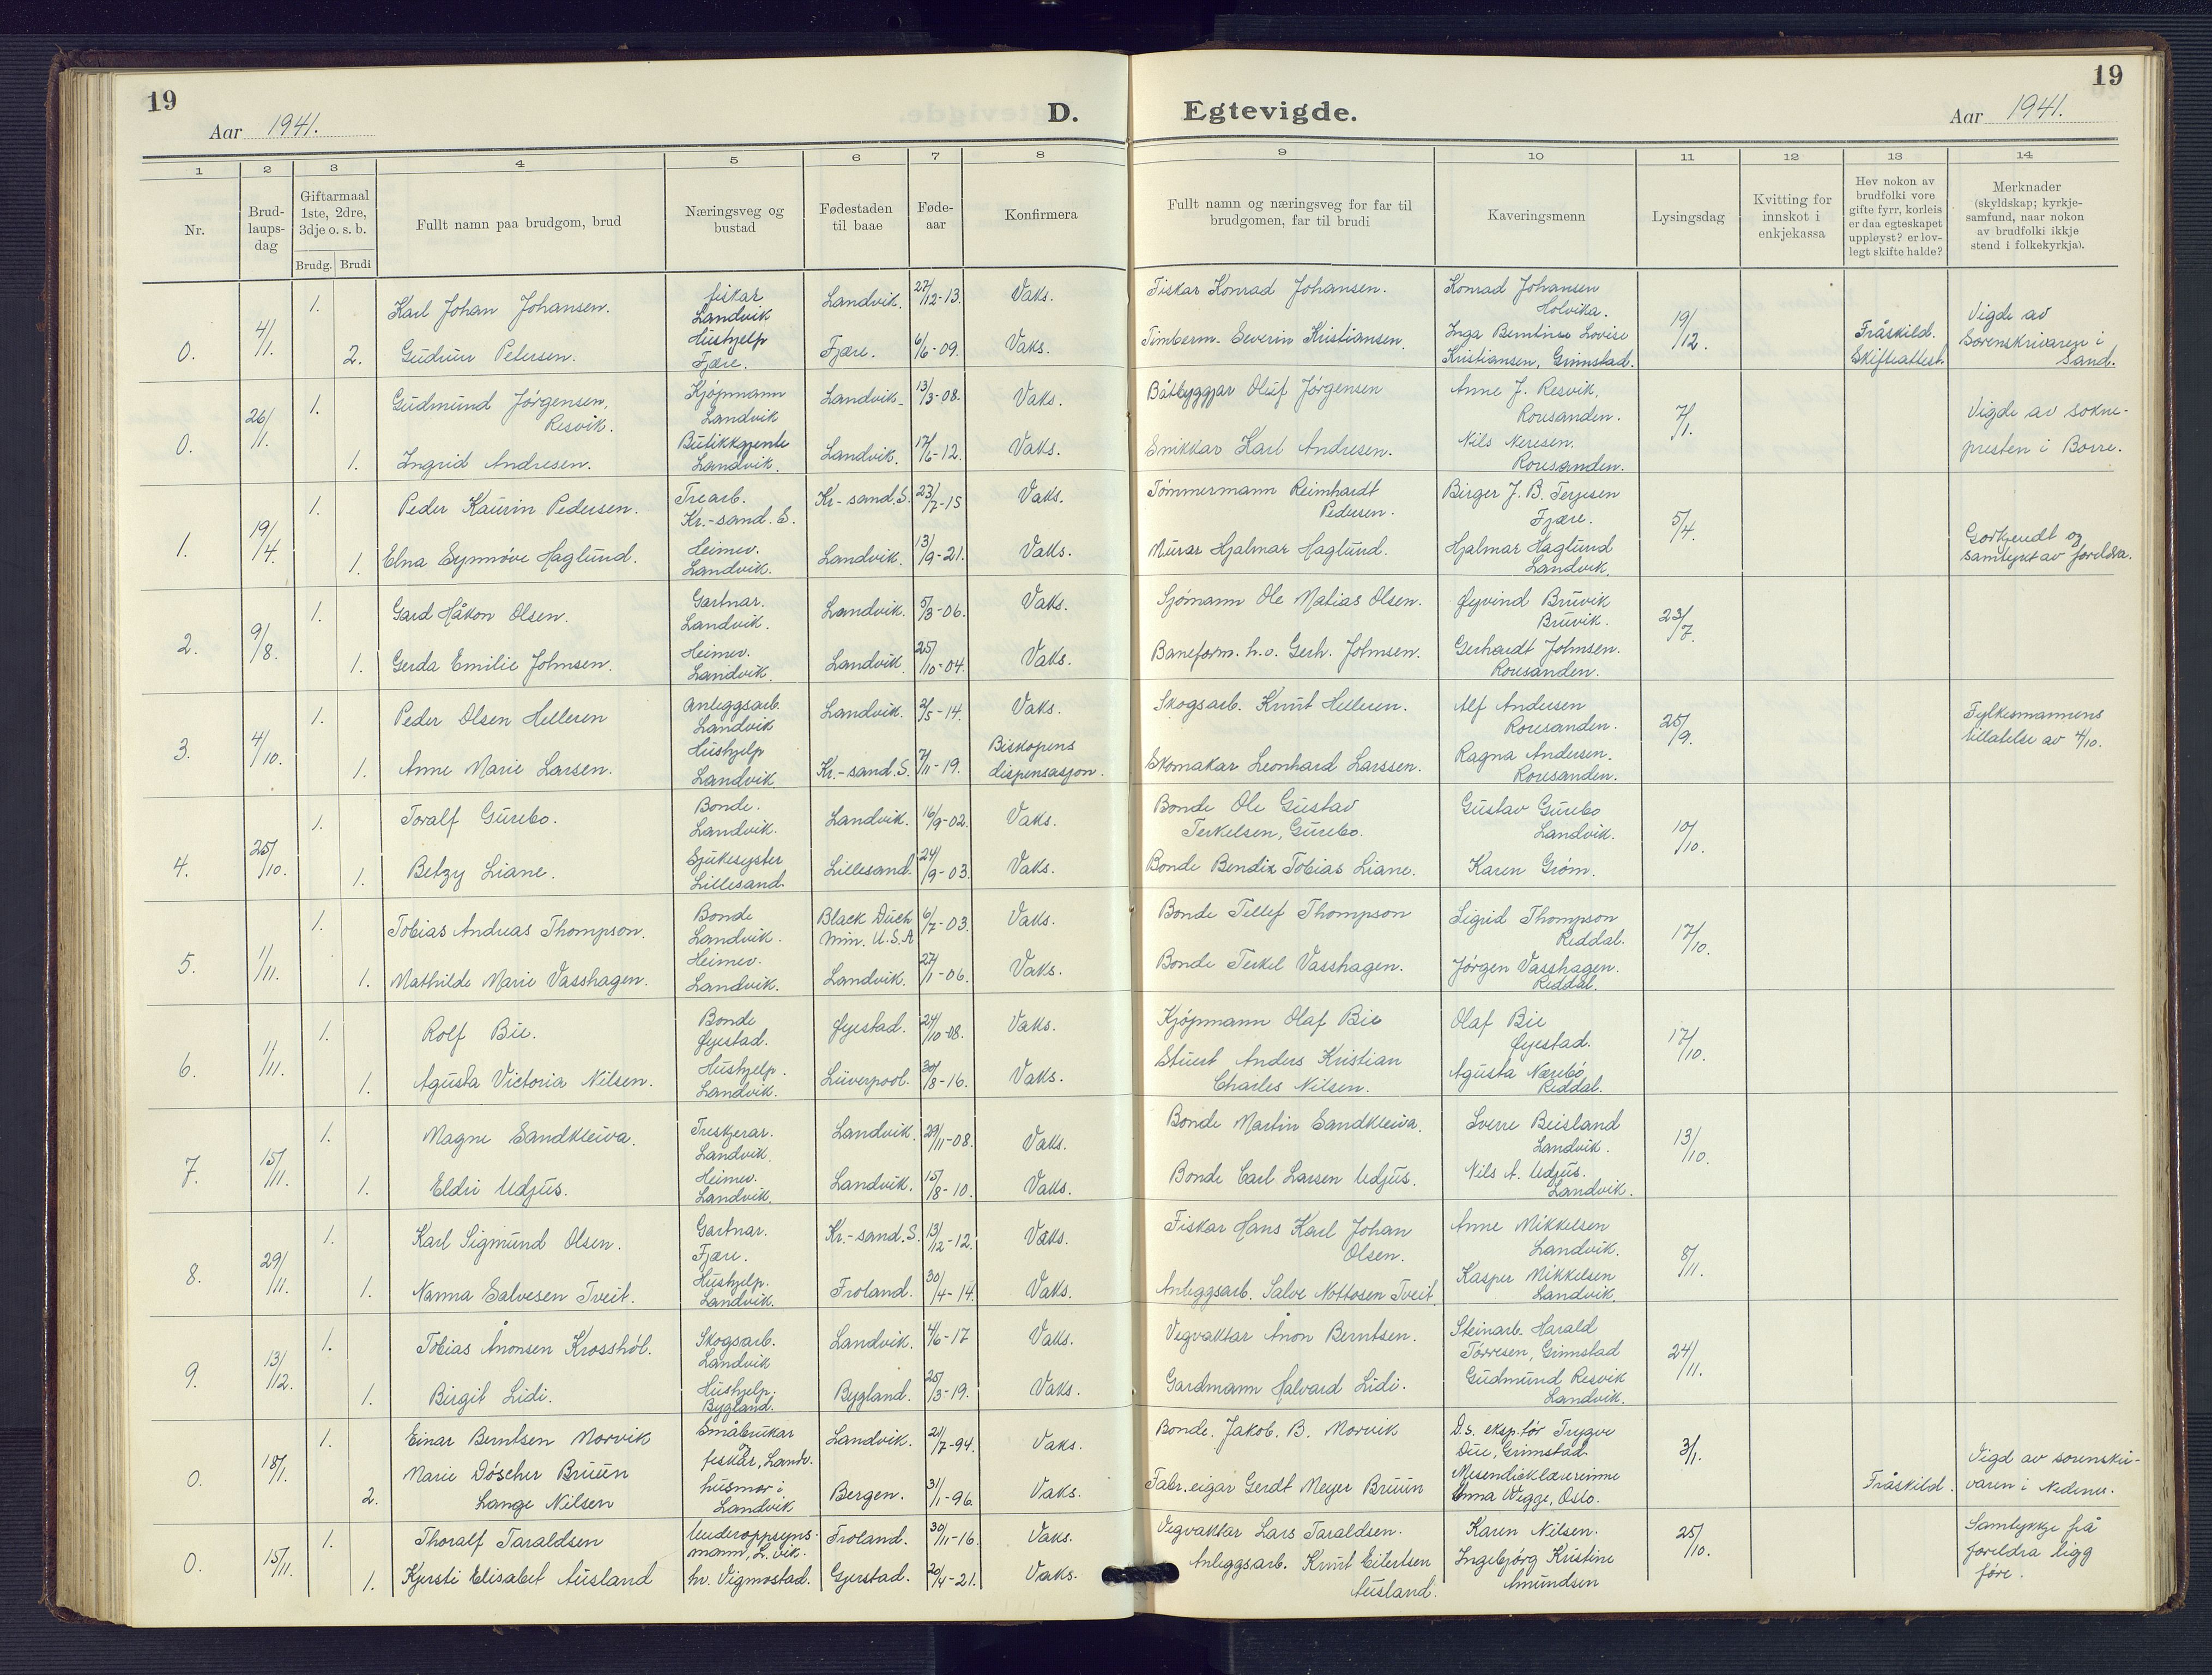 19
Aar 1941.
D.
Egtevigde.
Aar 1941.
19
1 2 3 4 5 6 7 8 9 10 11 12 13 14
Nr.
Brud-
laups-
dag
Giftarmaal
1ste, 2dre,
3dje o. s. b.
Brudg. Brudi
Fullt namn paa brudgom, brud
Næringsveg og
bustad
Fødestaden
til baae
Føde-
aar
Konfirmera
Fullt namn og næringsveg for far til
brudgomen, far til brudi
Kaveringsmenn
Lysingsdag
Kvitting for
innskot i
enkjekassa
Hev nokon av
brudfolki vore
gifte fyrr, korleis
er daa egteskapet
uppløyst? er lov-
legt skifte halde?
Merknader
(skyldskap; kyrkje-
samfund, naar nokon
av brudfolki ikkje
stend i folkekyrkja).
0. 4/1.
1. Karl Johan Johansen.
fiskar
Landvik
Landvik. 27/12-13. Vaks.
Fiskar Konrad Johansen.
Konrad Johansen
Holvika.
2. Gudrun Petersen.
Hushjelp
Fjære.
Fjære. 6/6-09. Vaks.
Timberm. Severin Kristiansen.
Inga Berntine Lovise
Kristiansen, Grimstad.
19/12.
Fråskild.
Skifteattest.
Vigde av
Sorenskrivaren i
Sand.
0. 26/1.
1. Gudmund Jørgensen,
Resvik.
Kjøpmann
Landvik
Landvik. 13/3-08. Vaks.
Båtbyggjar Oluf Jørgensen
Anne J. Resvik,
Roresanden.
1. Ingrid Andresen.
Butikkgjente
Landvik.
Landvik. 17/6-12. Vaks.
Snikkar Karl Andresen.
Nils Neresen.
Roresanden.
7/1.
Vigde av sokne-
presten i Borre.
1. 19/4.
1. Peder Kaurin Pedersen.
Trearb.
Kr.-sand. S.
Kr.-sand.S. 23/7-15 Vaks.
Tømmermann Reimhardt
Pedersen.
Birger J. B. Terjesen
Fjære.
1. Elna Synnøve Haglund.
Heimev.
Landvik.
Landvik. 13/9-21. Vaks.
Murar Hjalmar Haglund.
Hjalmar Haglund
Landvik.
5/4.
Godkjendt og
samtykt av foreldra.
2. 9/8.
1. Gard Håkon Olsen.
Gartnar.
Landvik.
Landvik. 5/3-06. Vaks.
Sjømann Ole Matias Olsen.
Øyvind Bruvik
Bruvik.
1. Gerda Emilie Johnsen.
Heimev.
Landvik.
Landvik 25/10-04. Vaks.
Baneform. h.v. Gerh. Johnsen.
Gerhardt Johnsen.
Roresanden.
23/7.
3. 4/10.
1. Peder Olsen Helleren
Anleggsarb.
Landvik
Landvik. 2/5-14. Vaks.
Skogsarb. Knut Helleren.
Alf Andersen
Roresanden.
1. Anne Marie Larsen.
Hushjelp
Landvik
Kr.-sand.S. 7/11-19.
Biskopens
dispensasjon.
Skomakar Leonhard Larssen.
Ragna Andersen.
Roresanden.
25/9.
Fylkesmannens
tillatelse av 4/10.
4. 25/10.
1. Toralf Gurebo.
Bonde.
Landvik.
Landvik. 16/9-02. Vaks.
Bonde Ole Gustav
Terkelsen, Gurebo.
Gustav Gurebo
Landvik.
1. Betzy Liane.
Sjukesyster
Lillesand.
Lillesand. 24/9-03. Vaks.
Bonde Bendix Tobias Liane.
Karen Grøm.
10/10.
5. 1/11.
1. Tobias Andreas Thompson.
Bonde
Landvik.
Black Duch
min. U.S.A 6/7-03. Vaks.
Bonde Tellef Thompson
Sigrid Thompson
Reddal.
1. Mathilde Marie Vasshagen.
Heimev.
Landvik.
Landvik. 27/1-06. Vaks.
Bonde Terkel Vasshagen.
Jørgen Vasshagen.
Reddal.
17/10.
6. 1/11.
1. Rolf Bie.
Bonde
Øyestad.
Øyestad. 24/10-08. Vaks.
Kjøpmann Olaf Bie
Olaf Bie
Øyestad.
1. Agusta Victoria Nilsen.
Hushjelp.
Landvik.
Liverpool. 30/8-16. Vaks.
Stuert Anders Kristian
Charles Nilsen.
Agusta Nærebø
Reddal.
17/10.
7. 15/11.
1. Magne Sandkleiva.
Treskjerar.
Landvik.
Landvik. 29/11-08. Vaks.
Bonde Martin Sandkleiva.
Sverre Beisland
Landvik.
1. Eldri Udjus.
Heimev.
Landvik.
Landvik. 15/8-10. Vaks.
Bonde Carl Larsen Udjus.
Nils A. Udjus.
Landvik.
13/10.
8. 29/11.
1. Karl Sigmund Olsen.
Gartnar.
Fjære.
Kr.-sand.S. 13/12-12. Vaks.
Fiskar Hans Karl Johan
Olsen.
Anne Mikkelsen
Landvik.
1. Nanna Salvesen Tveit.
Hushjelp.
Landvik.
Froland. 30/4-14. Vaks.
Anleggsarb. Salve Nottosen Tveit.
Kasper Mikkelsen
Landvik.
8/11.
9. 13/12.
1. Tobias Ånonsen Krosshøl.
Skogsarb.
Landvik
Landvik. 4/6-17 Vaks.
Vegvaktar Ånon Berntsen.
Steinarb. Harald
Torresen, Grimstad
1. Birgit Lidi.
Hushjelp.
Bygland.
Bygland. 25/3-19. Vaks.
Gardmann Halvard Lidi.
Gudmund Resvik
Landvik.
24/11.
0. 18/1.
1. Einar Berntsen Morvik
Småbrukar
og
fiskar, Landv.
Landvik. 21/7-94. Vaks.
Bonde. Jakob. B. Morvik
D.s. eksp.før Trygve
Due, Grimstad
2. Marie Döscher Bruun
Lange Nilsen
husmor i
Landvik
Bergen. 31/1-96. Vaks.
Fabr.eigar Gerdt Meyer Bruun
Mesendieklærerinne
Unna Wigge, Oslo.
3/1.
Fråskild.
Vigd av sorenskri-
varen i Nedenes.
0. 15/11.
1. Thoralf Taraldsen
Underoppsyns-
mann, L.vik.
Froland. 30/11-16. Vaks.
Vegvaktar Lars Taraldsen.
Karen Nilsen.
1. Kjersti Elisabet Ausland
hv. Vigmostad.
Gjerstad. 20/4-21. Vaks.
Anleggsarb. Knut Eilertsen
Ausland.
Ingebjørg Kristine
Amundsen
25/10.
Samtykkje frå
foreldra ligg
føre.